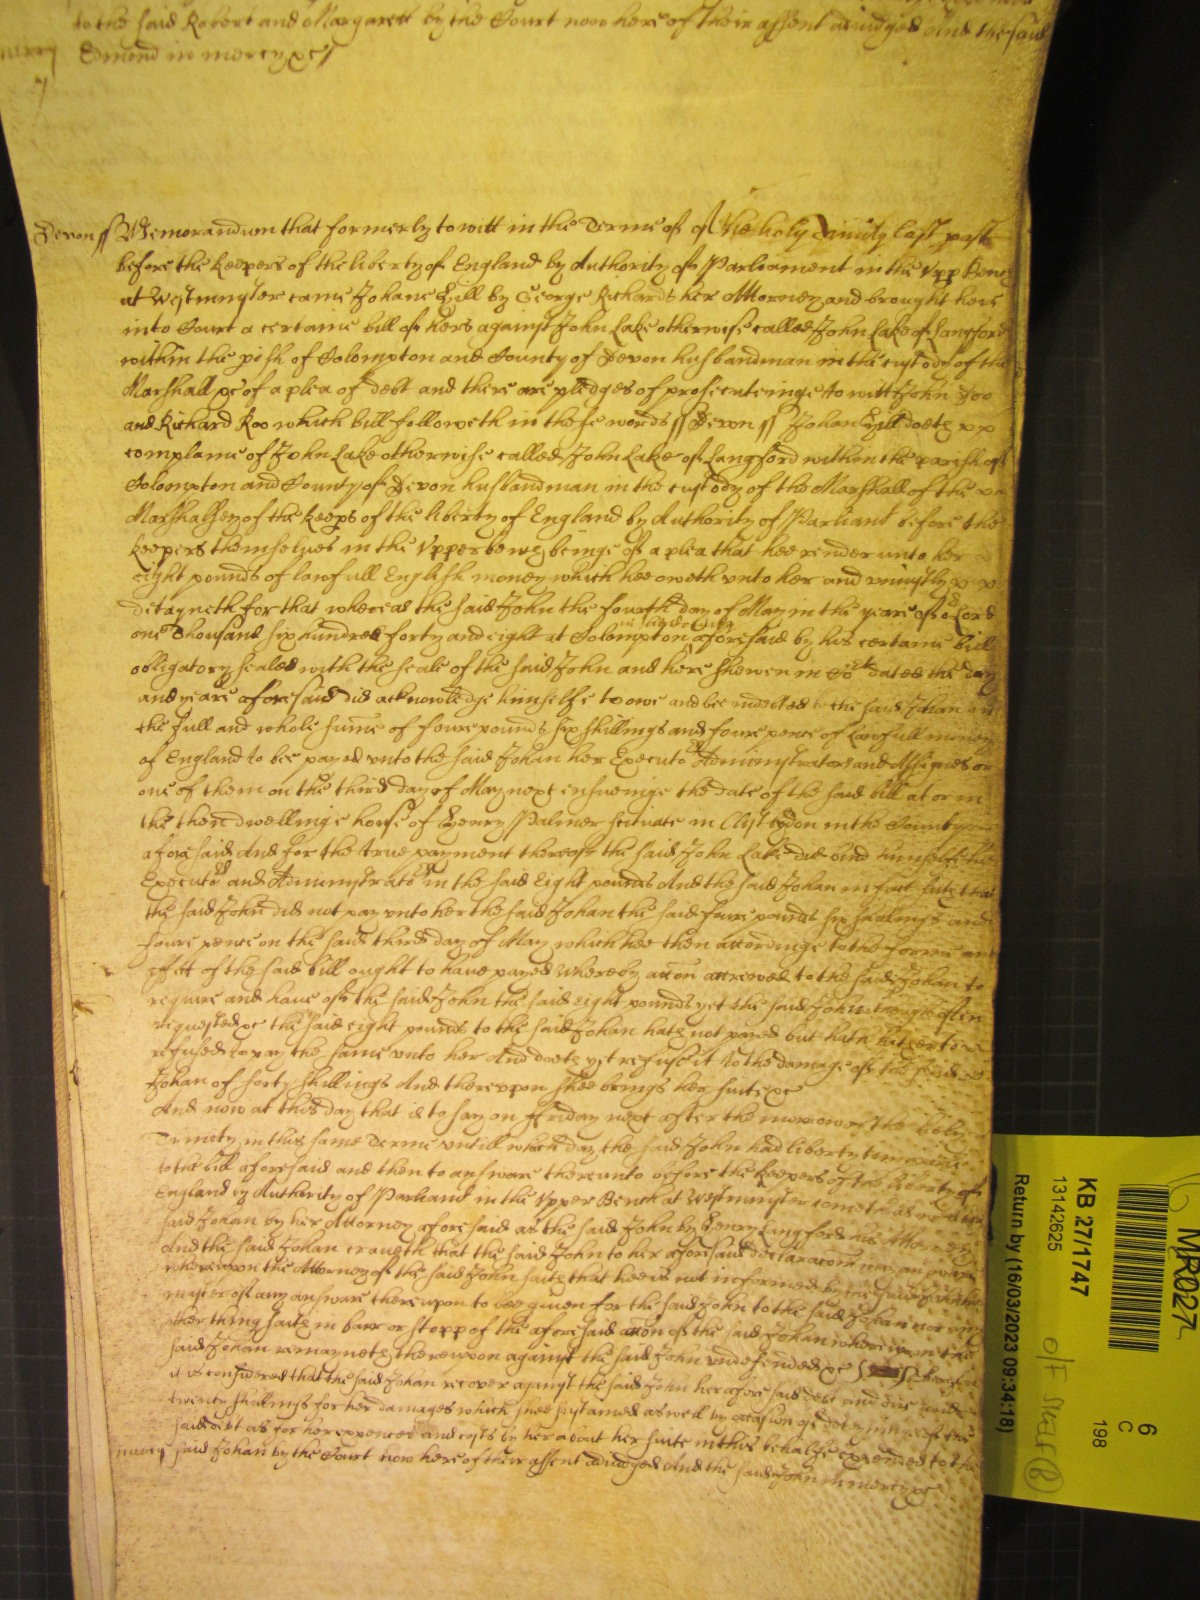 to the said Robert and Margarett by the Court now here of their assent adiudged And the said
mercy Edmond in mercy &c
Devon ss Memorandum that formerly to witt in the Terme of the holy Trinity last past
before the keepers of the liberty of England by Authority of Parliament in the Vpp Bench
at Westminster came Johane Hill by George Richards her Attorney and brought here
into Court a certaine bill of hers against John Lake otherwise called John Lake of Langford
within the pish of Colompton and County of Devon husbandman in the custody of the
Marshall &c of a plea of debt and there are pledges of prosecuteinge to witt John Doo
and Richard Roo which bill followeth in these words ss Devon ss Johan Hill doeth
complaine of John Lake otherwise called John Lake of Langford within the parish of
Colompton and County of Devon husbandman in the custody of the Marshall of the
Marshalsey of the keeps of the liberty of England by Authority of Parliant before the
keepers themselves in the Vpper bench beinge of a plea that hee render unto her
eight pounds of lawfull English money which hee oweth vnto her and vniustly
detayneth for that whereas the said John the fourth day of May in the yeare of or Lord
one Thousand six hundred forty and eight at Colompton aforesaid by his certaine bill
obligatory sealed with the seale of the said John and here shewen in Cort dated the day
and yeare aforesaid did acknowledge himselfe to owe and bee indebted to the said Johan in
the full and whole sume of foure pounds six shillings and foure pence of lawfull money
of England to bee payed vnto the said Johan her Executors Administrators and Assignes or
one of them on the third day of May next ensueinge the date of the said bill at or in
the then dwellinge house of Henry Palmer scituate in Clist hydon in the County
aforesaid And for the true payment thereof the said John Lake did bind himselfe his
Executors and Administrators in the said Eight pounds And the said Johan in fact saith that
the said John did not pay unto her the said Johan the said foure pounds six shillings and
foure pence on the said third day of May which hee then accordinge to the forme and
effect of the said bill ought to have payed Whereby accon accrewed to the said Johan to
require and have of the said John the said eight pounds yet the said John though often
requested &c the said eight pounds to the said Johan hath not payed but hath hitherto
refused to pay the same vnto her And doeth yet refuse it to the damage of the said
Johan of forty shillings And therevpon shee brings her suite &c
And now at this day that is to say on Fryday next after the morrow of the holy
Trinity in this same Terme vntill which day the said John had liberty to imparle
to the bill aforesaid and then to answare thereunto before the keepers of the liberty of
England by Authority of Parliant in the Vpper Bench at Westminster cometh as well the
said Johan by her Attorney aforesaid as the said John by Henry Langford his Attorney
And the said Johan craveth that the said John to her aforesaid declaracon may answare
wherevpon the Attorney of the said John saith that hee is not informed by the said John his
master of any answare therevpon to bee given for the said John to the said Johan nor any
other thing saith in barr or stopp of the aforesaid accon of the said Johan wherevpon the
said Johan remayneth therevpon against the said John vndefended &c Therefore
it is considered that the said Johan recover against the said John her aforesaid debt and
twenty shillings for her damages which shee sustained aswell by occasion of detayninge of the
said debt as for her expences and costs by her about her suite in this behalfe expended to the
mercy said Johan by the Court now here of their assent adiudged And the said John in mercy &c
MR027
6
C
198
KB 27/1747
13142625
Return by (16/03/2023 09:34:18)